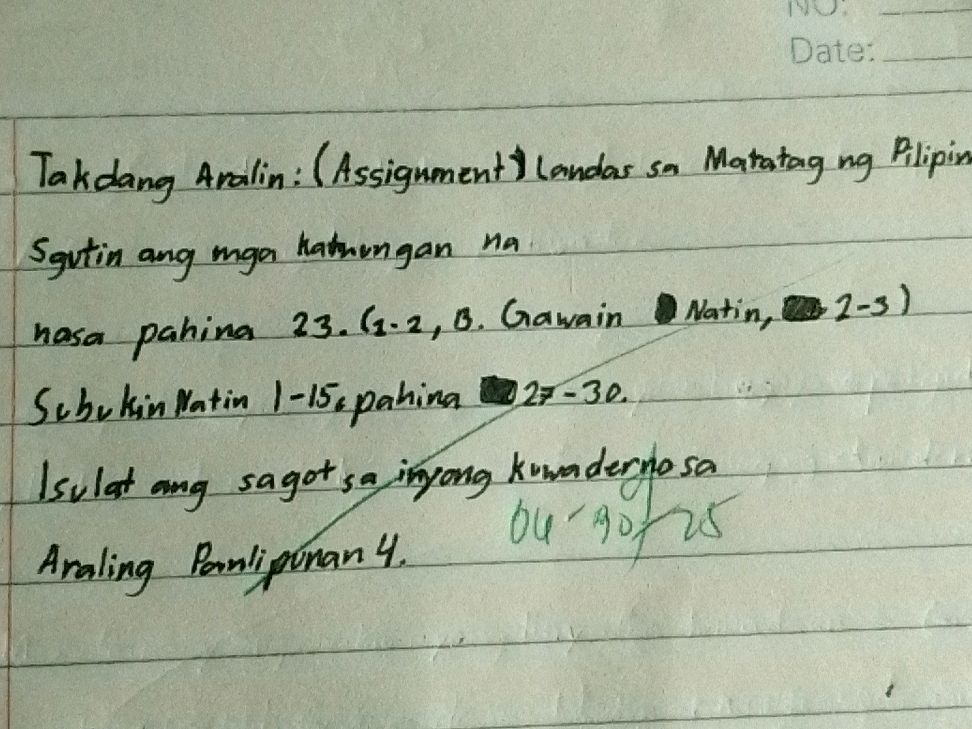 NO:
Date:
Takdang Aralin: (Assignment) Landas sa Matatag ng Pilipin
Sgutin ang mga katnungan na
nasa pahina 23. (1-2, B. Gawain Natin, 2-3)
Subukin Natin 1-15, pahina 27-30.
Isulat ang sagot sa inyong kuwaderno sa
Araling Panlipunan 4.